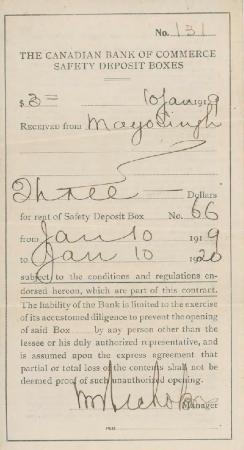 No. 131
THE CANADIAN BANK OF COMMERCE
SAFETY DEPOSIT BOXES
$ 3= 10 Jan 1919
RECEIVED from Mayo Singh
Three Dollars
for rent of Safety Deposit Box No. 66
from Jan 10 1919
to Jan 10 1920
subject to the conditions and regulations en-
dorsed hereon, which are part of this contract.
The liability of the Bank is limited to the exercise
of its accustomed diligence to prevent the opening
of said Box by any person other than the
lessee or his duly authorized representative, and
is assumed upon the express agreement that
partial or total loss of the contents shall not be
deemed proof of such unauthorized opening.
Manager